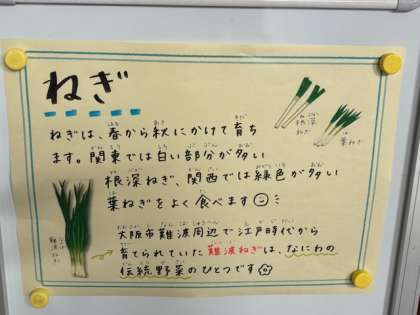 ねぎ
ねぎは、春から秋にかけて育ち
ます。関東では白い部分が多い
根深ねぎ、関西では緑色が多い
葉ねぎをよく食べます
大阪市難波周辺で江戸時代から
育てられていた難波ねぎは、なにわの
伝統野菜のひとつです
根深ねぎ
葉ねぎ
難波ねぎ